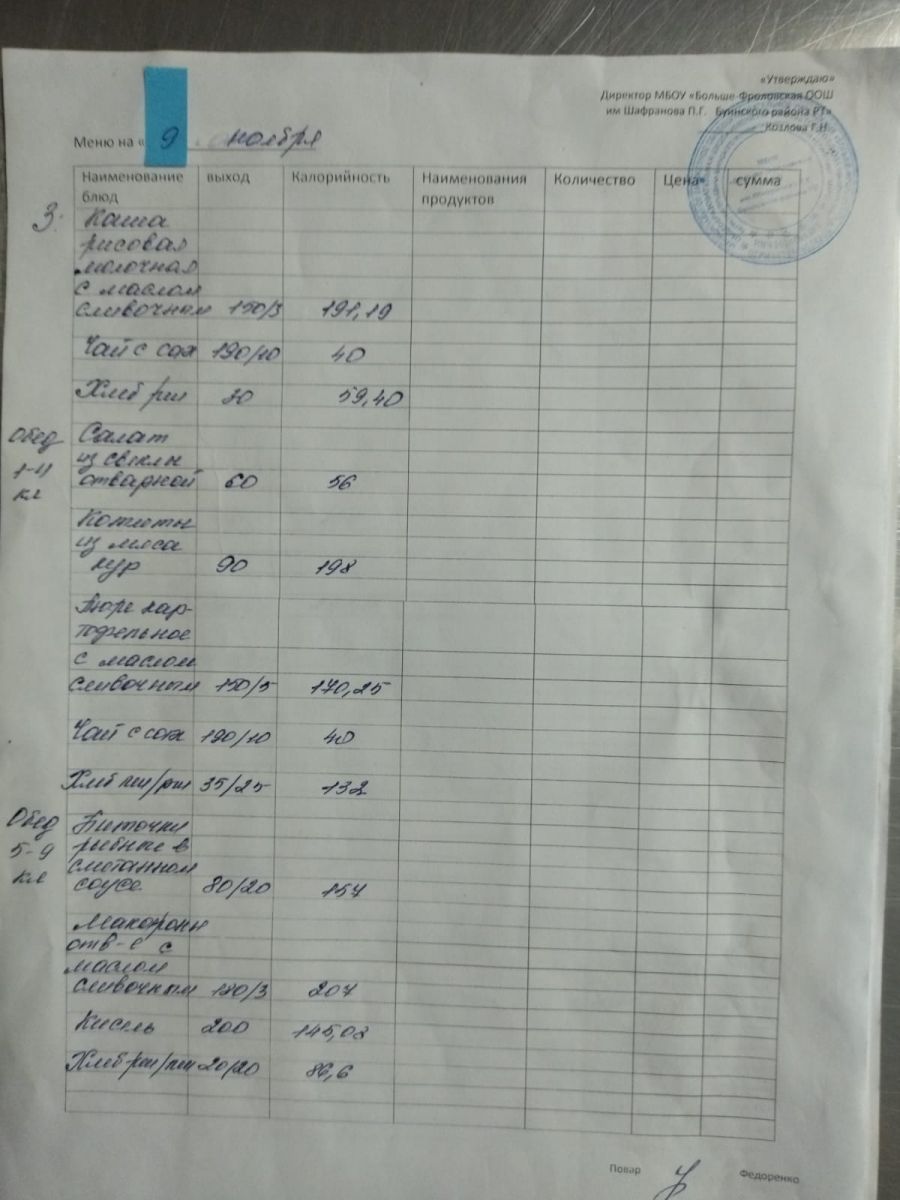 «Утверждаю»
Директор МБОУ «Больше-Фроловская ООШ
им Шафранова П.Г. Буинского района РТ»
Козлова Г.Н.
Меню на « 9 ноября
Наименование блюд выход Калорийность Наименования продуктов Количество Цена сумма
З.
Каша
рисовая
молочная
с маслом
сливочном 150/3 191,19
Чай с сах 190/10 40
Хлеб рж 30 59,40
Обед
1-11
кл
Салат
из свеклы
отварной 60 56
Котлеты
из мяса
кур 90 198
Пюре кар-
тофельное
с маслом
сливочным 150/5 170,25
Чай с сах 190/10 40
Хлеб пш/рж 35/25 132
Обед
5-9
кл
Биточки
рыбные в
сметанном
соусе 80/20 157
Макароны
отв-е с
маслом
сливочным 180/3 207
Кисель 200 145,03
Хлеб рж/пш 20/20 86,6
Повар Федоренко